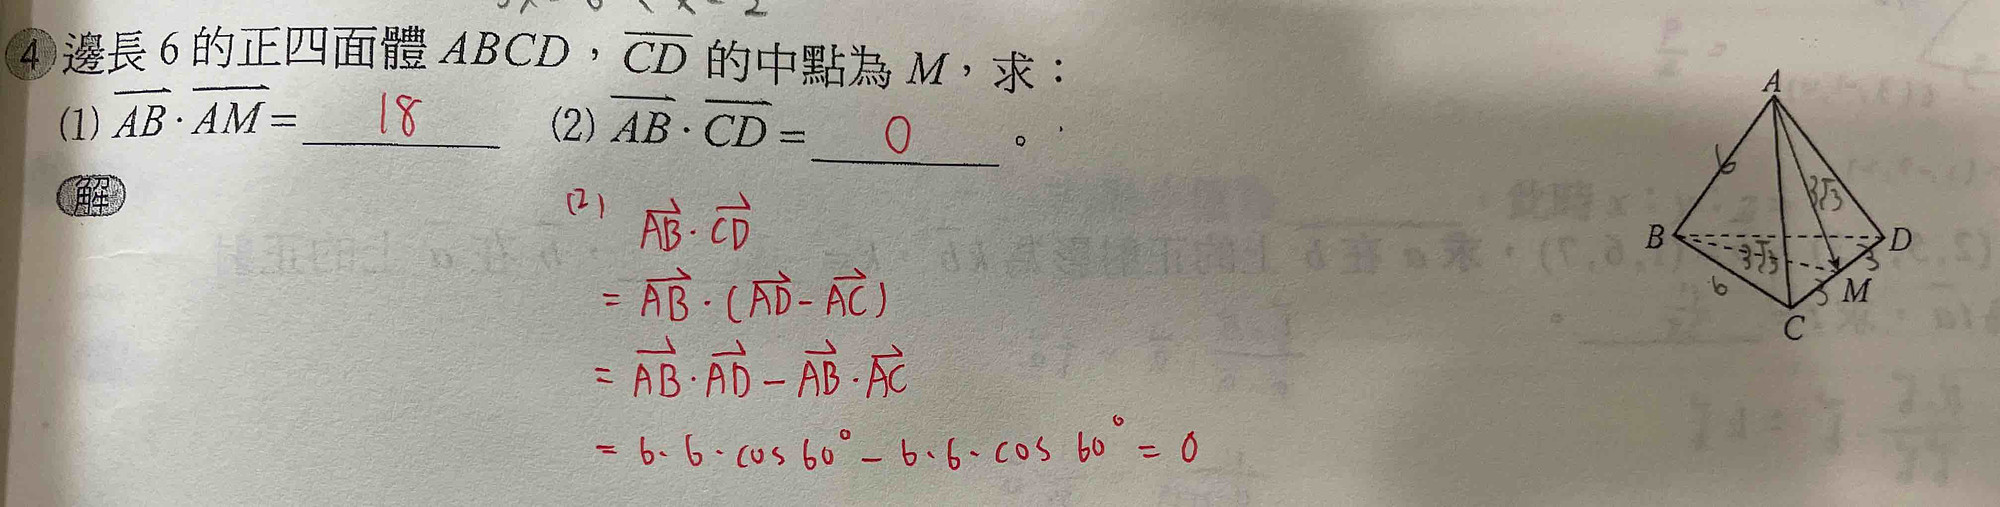 4 邊長 6 的正四面體 ABCD，$\overline{CD}$ 的中點為 M，求：
(1) $\overrightarrow{AB}\cdot\overrightarrow{AM}$ = 18 (2) $\overrightarrow{AB}\cdot\overrightarrow{CD}$ = 0 。
解
(2) $\overrightarrow{AB}\cdot\overrightarrow{CD}$
= $\overrightarrow{AB}\cdot(\overrightarrow{AD}-\overrightarrow{AC})$
= $\overrightarrow{AB}\cdot\overrightarrow{AD}-\overrightarrow{AB}\cdot\overrightarrow{AC}$
= 6·6·cos 60° − 6·6·cos 60° = 0
A
6
3√3
B
D
3√3
3
6
3
M
C